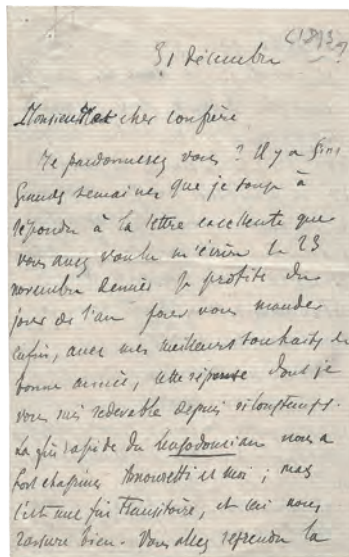 (189?)
31 décembre
Monsieur et cher confrère
Me pardonnerez vous ? Il y a cinq
grandes semaines que je songe à
répondre à la lettre excellente que
vous avez voulu m'écrire le 23
novembre dernier. Je profite du
jour de l'an pour vous mander
enfin, avec mes meilleurs souhaits de
bonne année, cette réponse dont je
vous suis redevable depuis si longtemps.
La fin rapide du nous a
fort chagrinés Amouretti et moi ; mais
c'est une fin transitoire, et ceci nous
rassure bien. Vous allez reprendre la